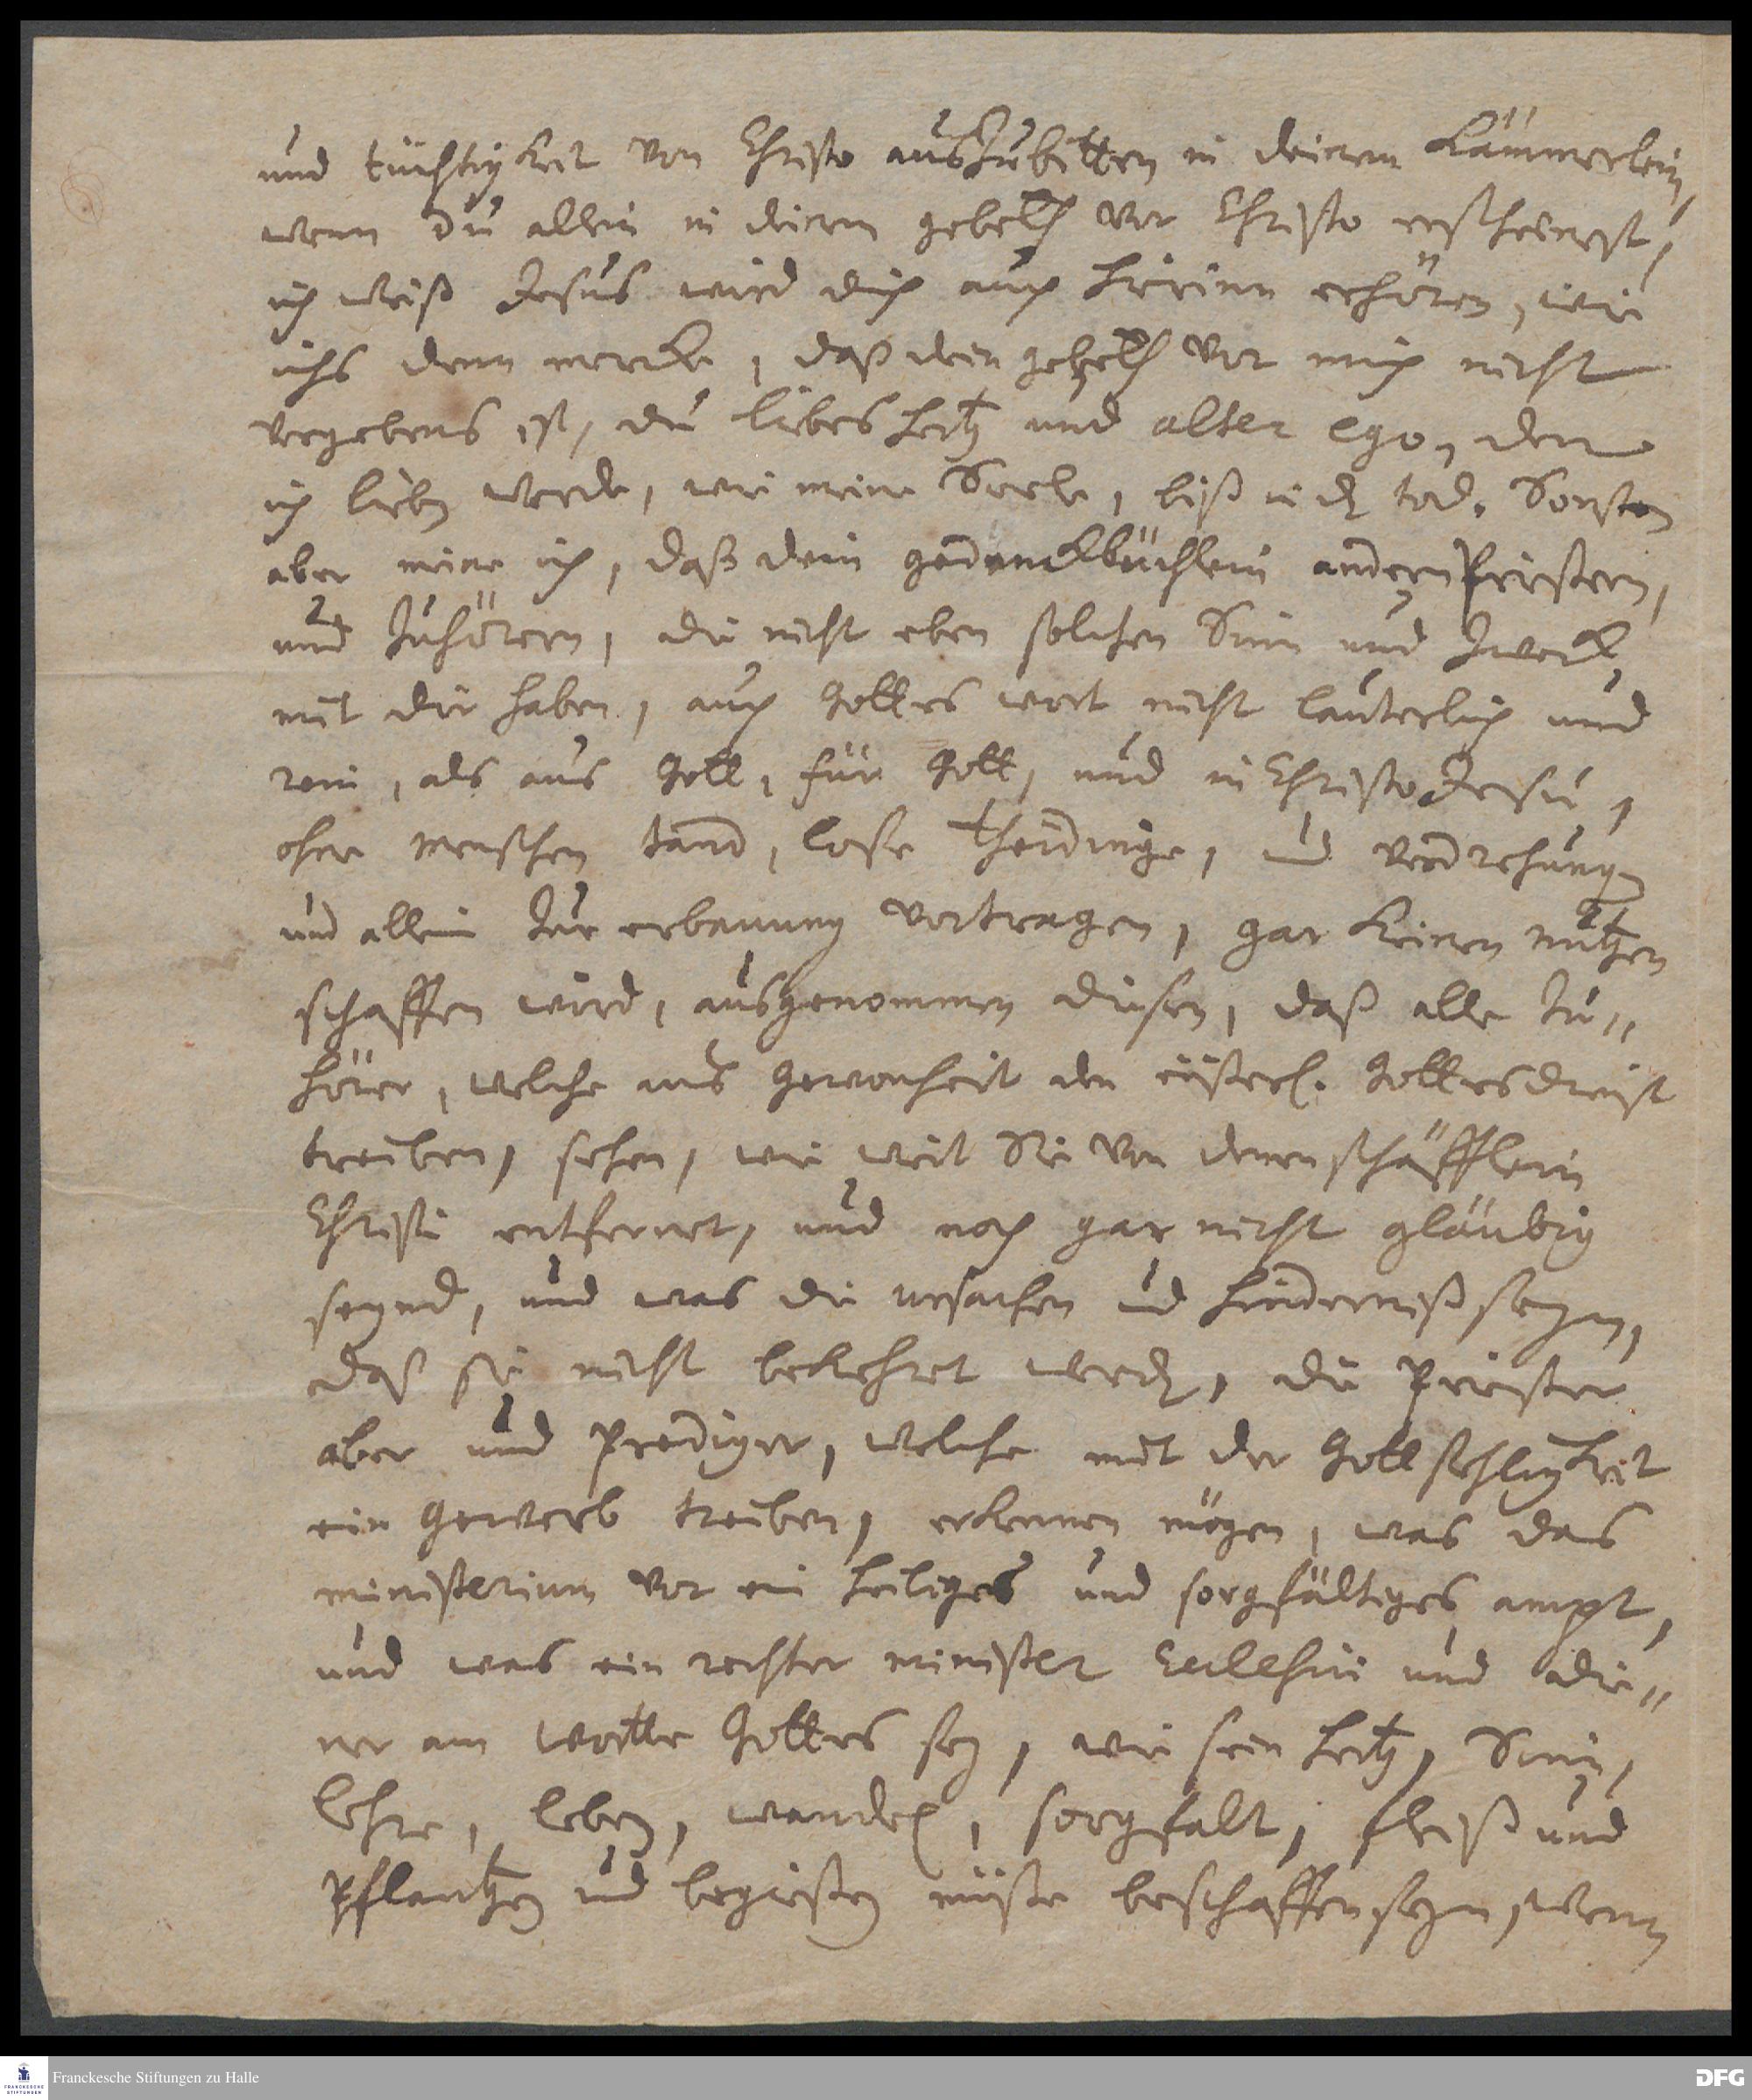 und tüchtigkeit von Christo auszubitten in deinem Kämmerlein,
wenn du allein in deinem gebeth vor Christo erscheinest,
ich weiß Jesus wird dich auch hierinn erhören, wie
ichs denn mercke, daß dein gebeth vor mich nicht
vergebens ist, du liebes Hertz und alter ego, den
ich lieben werde, wie meine Seele, biß in den tod. Sonsten
aber meine ich, daß dein gedenckbüchlein andern Priestern,
und Zuhörern, die nicht eben solchen Sinn und Zweck
mit dir haben, auch Gottes wort nicht lauterlich und
rein, als aus Gott, für Gott, und in Christo Jesu,
ohne menschen tand, lose theidinge, und verdrehungen
und allein zur erbauung vortragen, gar keinen nutzen
schaffen wird, ausgenommen diesen, daß alle Zu„
hörer, welche aus gewonheit den eüserl. Gottesdienst
treiben, sehen, wie weit Sie von denen schäfflein
Christi entfernet, und noch gar nicht gläubig
seynd, und was die ursachen und hinderniß seyn,
daß sie nicht bekehret werden, die Priester
aber und Prediger, welche mit der Gottsehligkeit
ein gewerb treiben, erkennen mögen, was das
ministerium vor ein heiliges und sorgfältiges ampt,
und was ein rechter minister Ecclesiæ und die„
ner am wortte Gottes sey, wie sein Hertz, Sinn,
lehre, leben, wandel, sorgfalt, fleiß und
Pflantzen und begießen müße beschaffen seyn, wenn
Franckesche Stiftungen zu Halle
FRANCKESCHE STIFTUNGEN
DFG